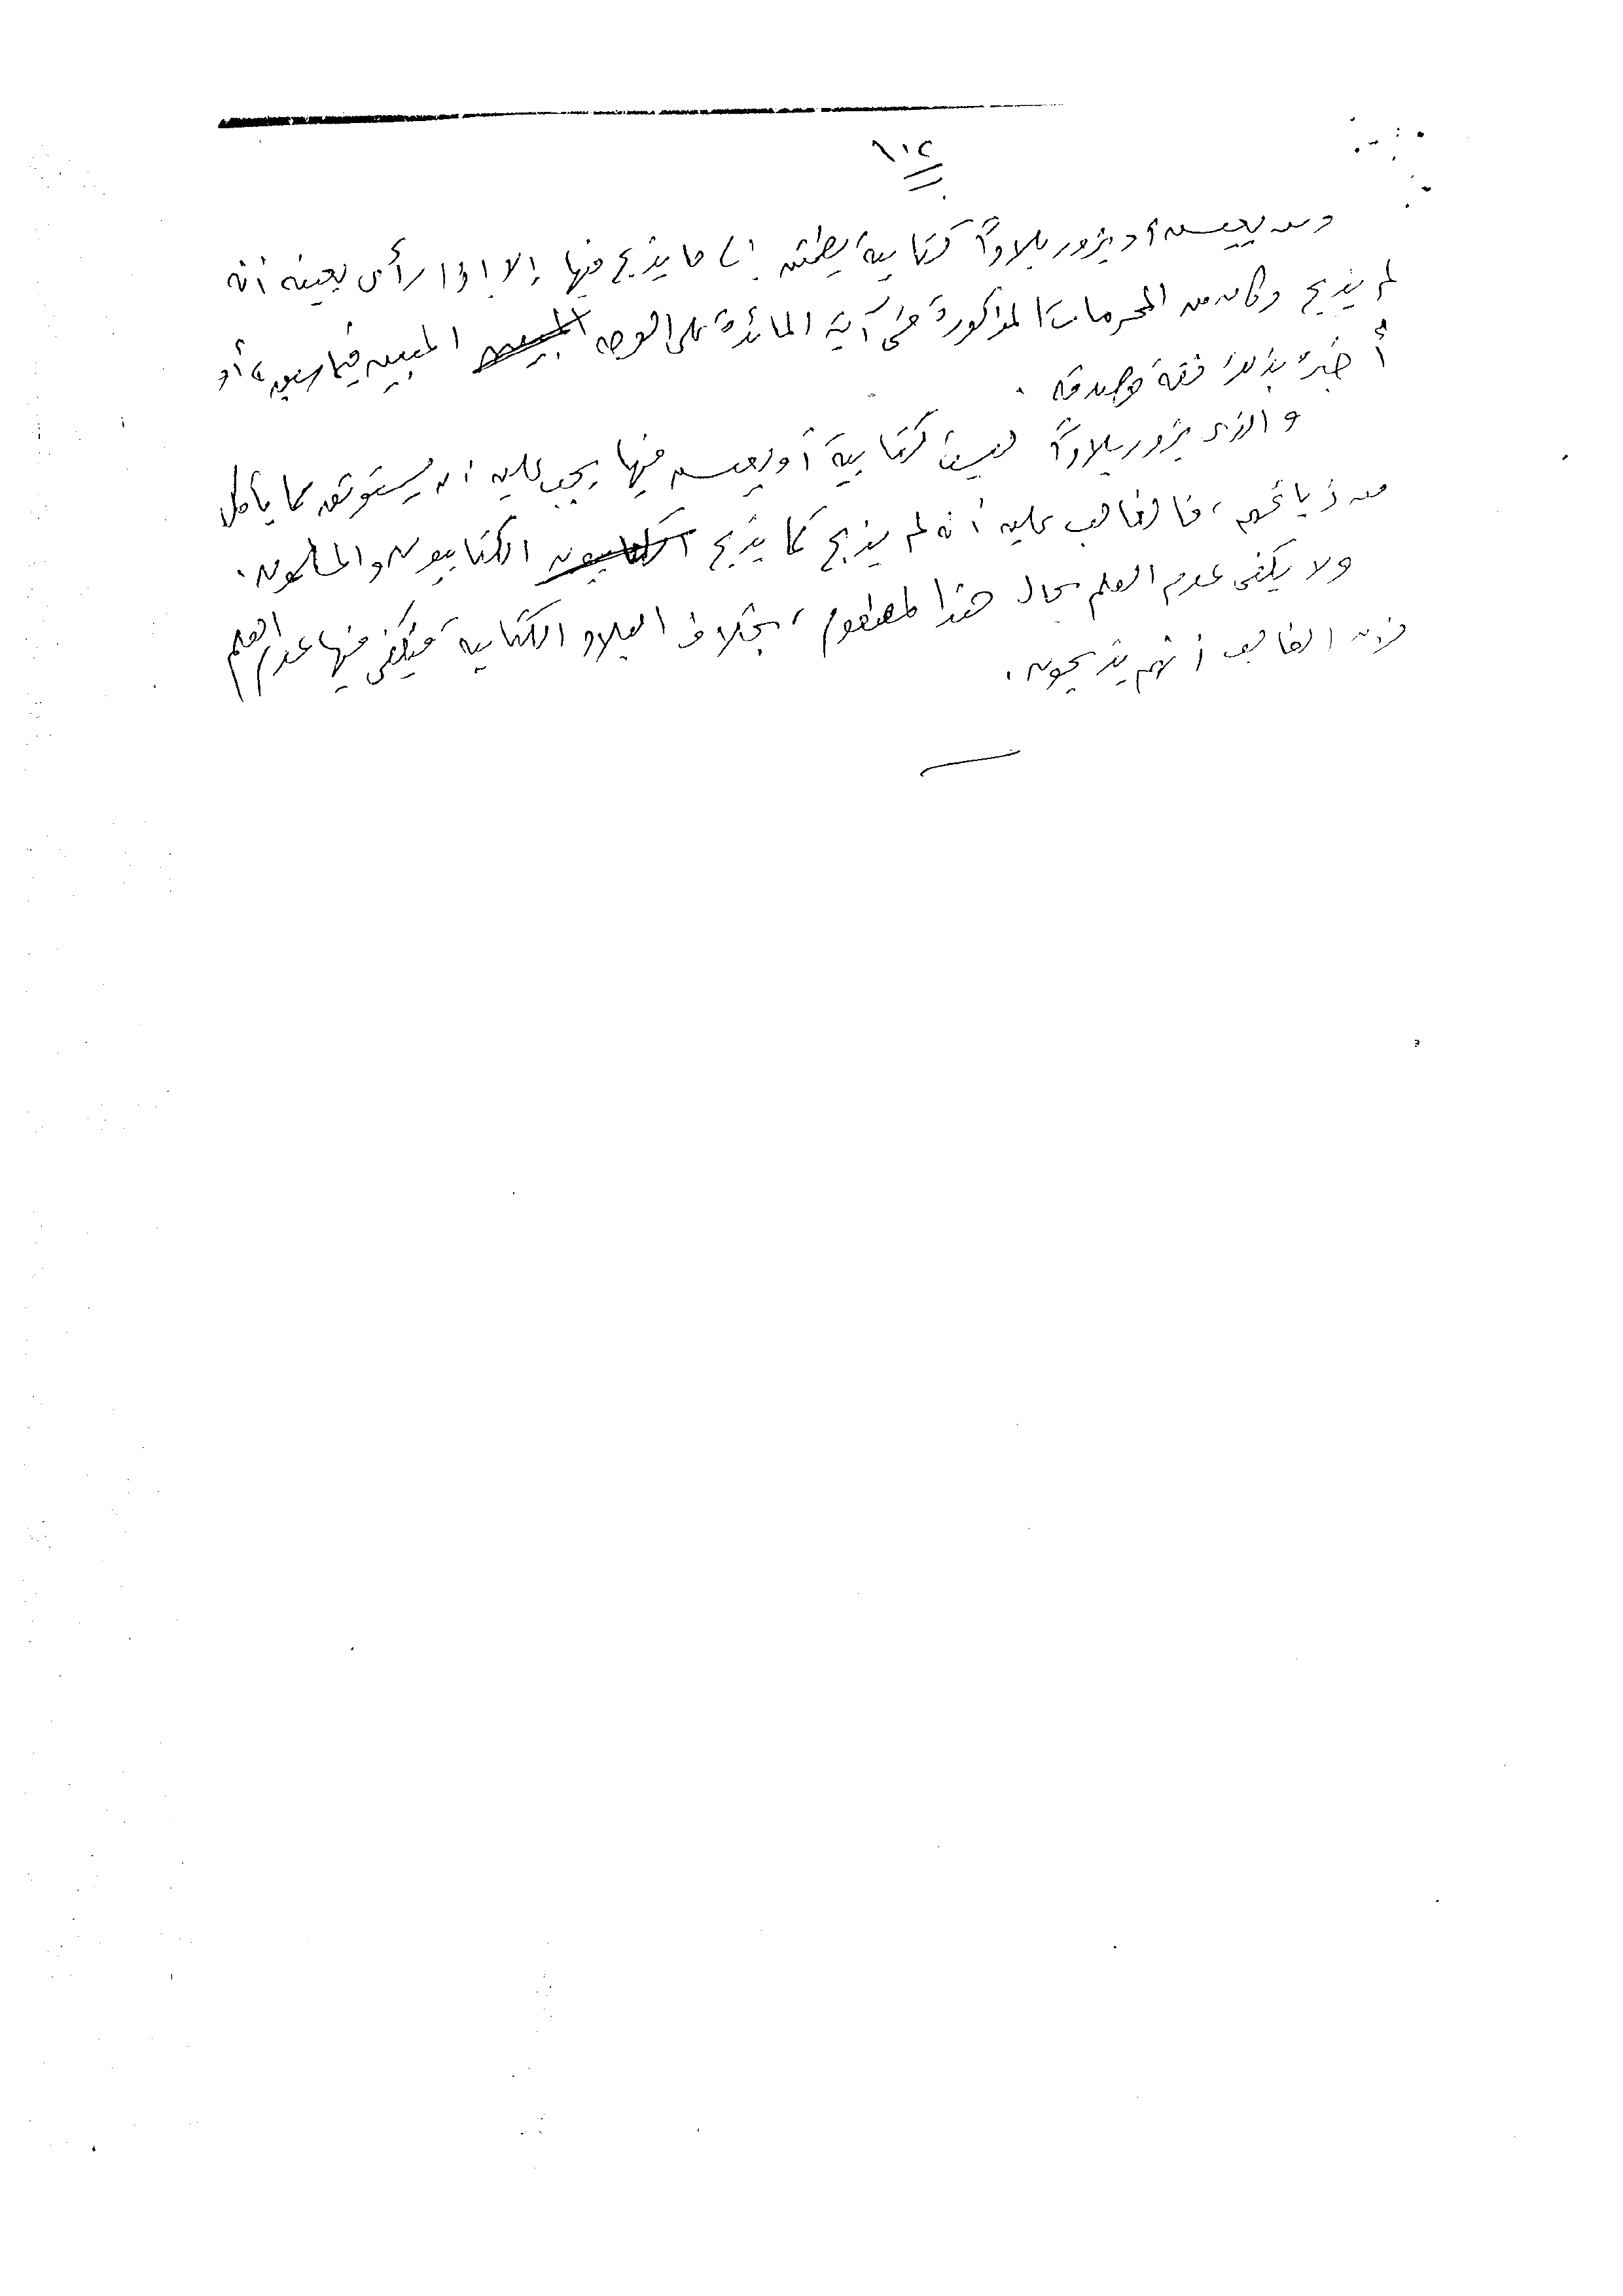 ١٠٢
ومن يعيش أو يزور بلاداً كتابية يطمئن إلى ما يذبح فيها إلا إذا رأى بعينه أنه
لم يذبح وكان من المحرمات المذكورة فى آية المائدة على الوجه المبين فيما سبق، أو
أخبره بذلك ثقة وصدقه .
والذى يزور بلاداً ليست كتابية أو يعيش فيها يجب عليه أن يستوثق مما يأكل
من ذبائحهم ، فالغالب عليه أنه لم يذبح كما يذبح الكتابيون والمسلمون .
ولا يكفى عدم العلم بحال هذا المطعوم ، بخلاف البلاد الكتابية فيكفى فيها عدم العلم
لأن الغالب أنهم يذبحون .